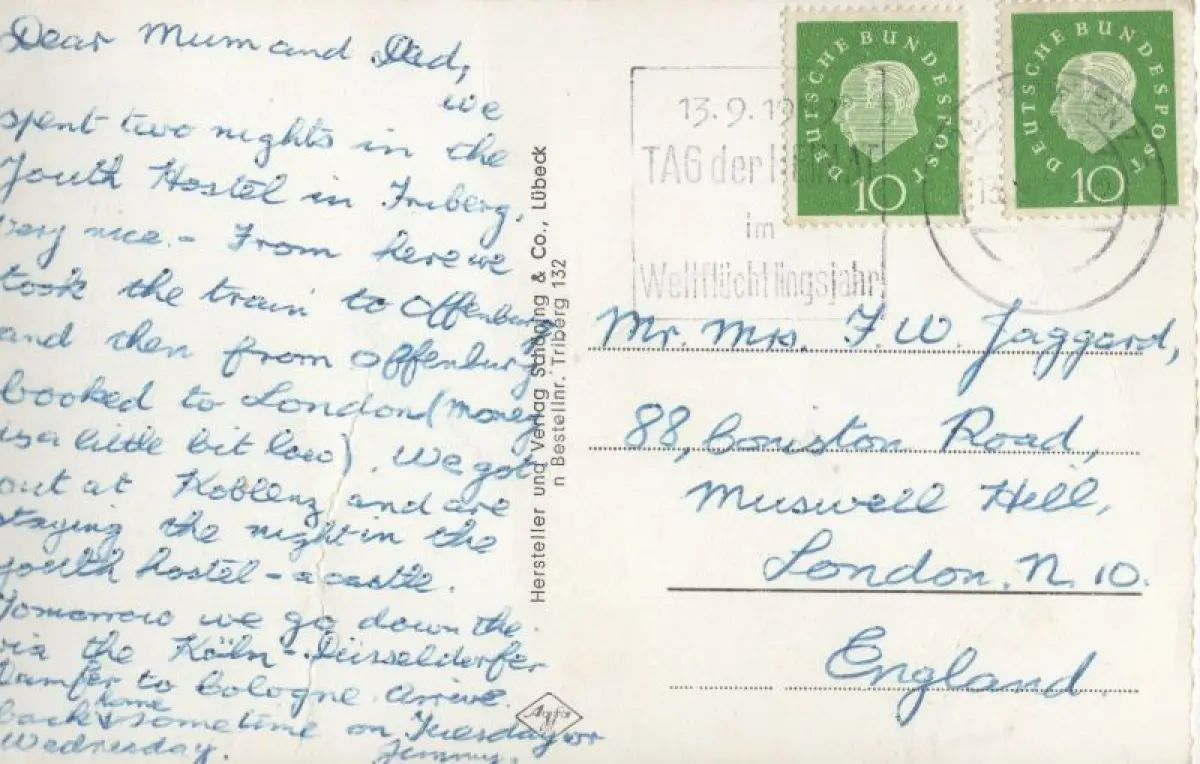 Dear Mum and Dad,
we
spent two nights in the
Youth Hostel in Triberg,
Very nice. - From here we
took the train to Offenburg
and then from Offenburg
booked to London (money
is a little bit low). We got
out at Koblenz and are
staying the night in the
youth hostel - a castle.
Tomorrow we go down the
via the Köln-Düsseldorfer
Damfer to Cologne. Arrive
home
back sometime on Tuesday or
Wednesday.
Jimmy.
Hersteller und Verlag Schöning & Co., Lübeck
n Bestellnr. Triberg 132
Agfa
13.9.19
TAG der HEIMAT
im
Weltflüchtlingsjahr
DEUTSCHE BUNDESPOST
10
DEUTSCHE BUNDESPOST
10
Mr. Mrs. F. W. Jaggard,
88, Coniston Road,
Muswell Hill,
London. N. 10.
England.